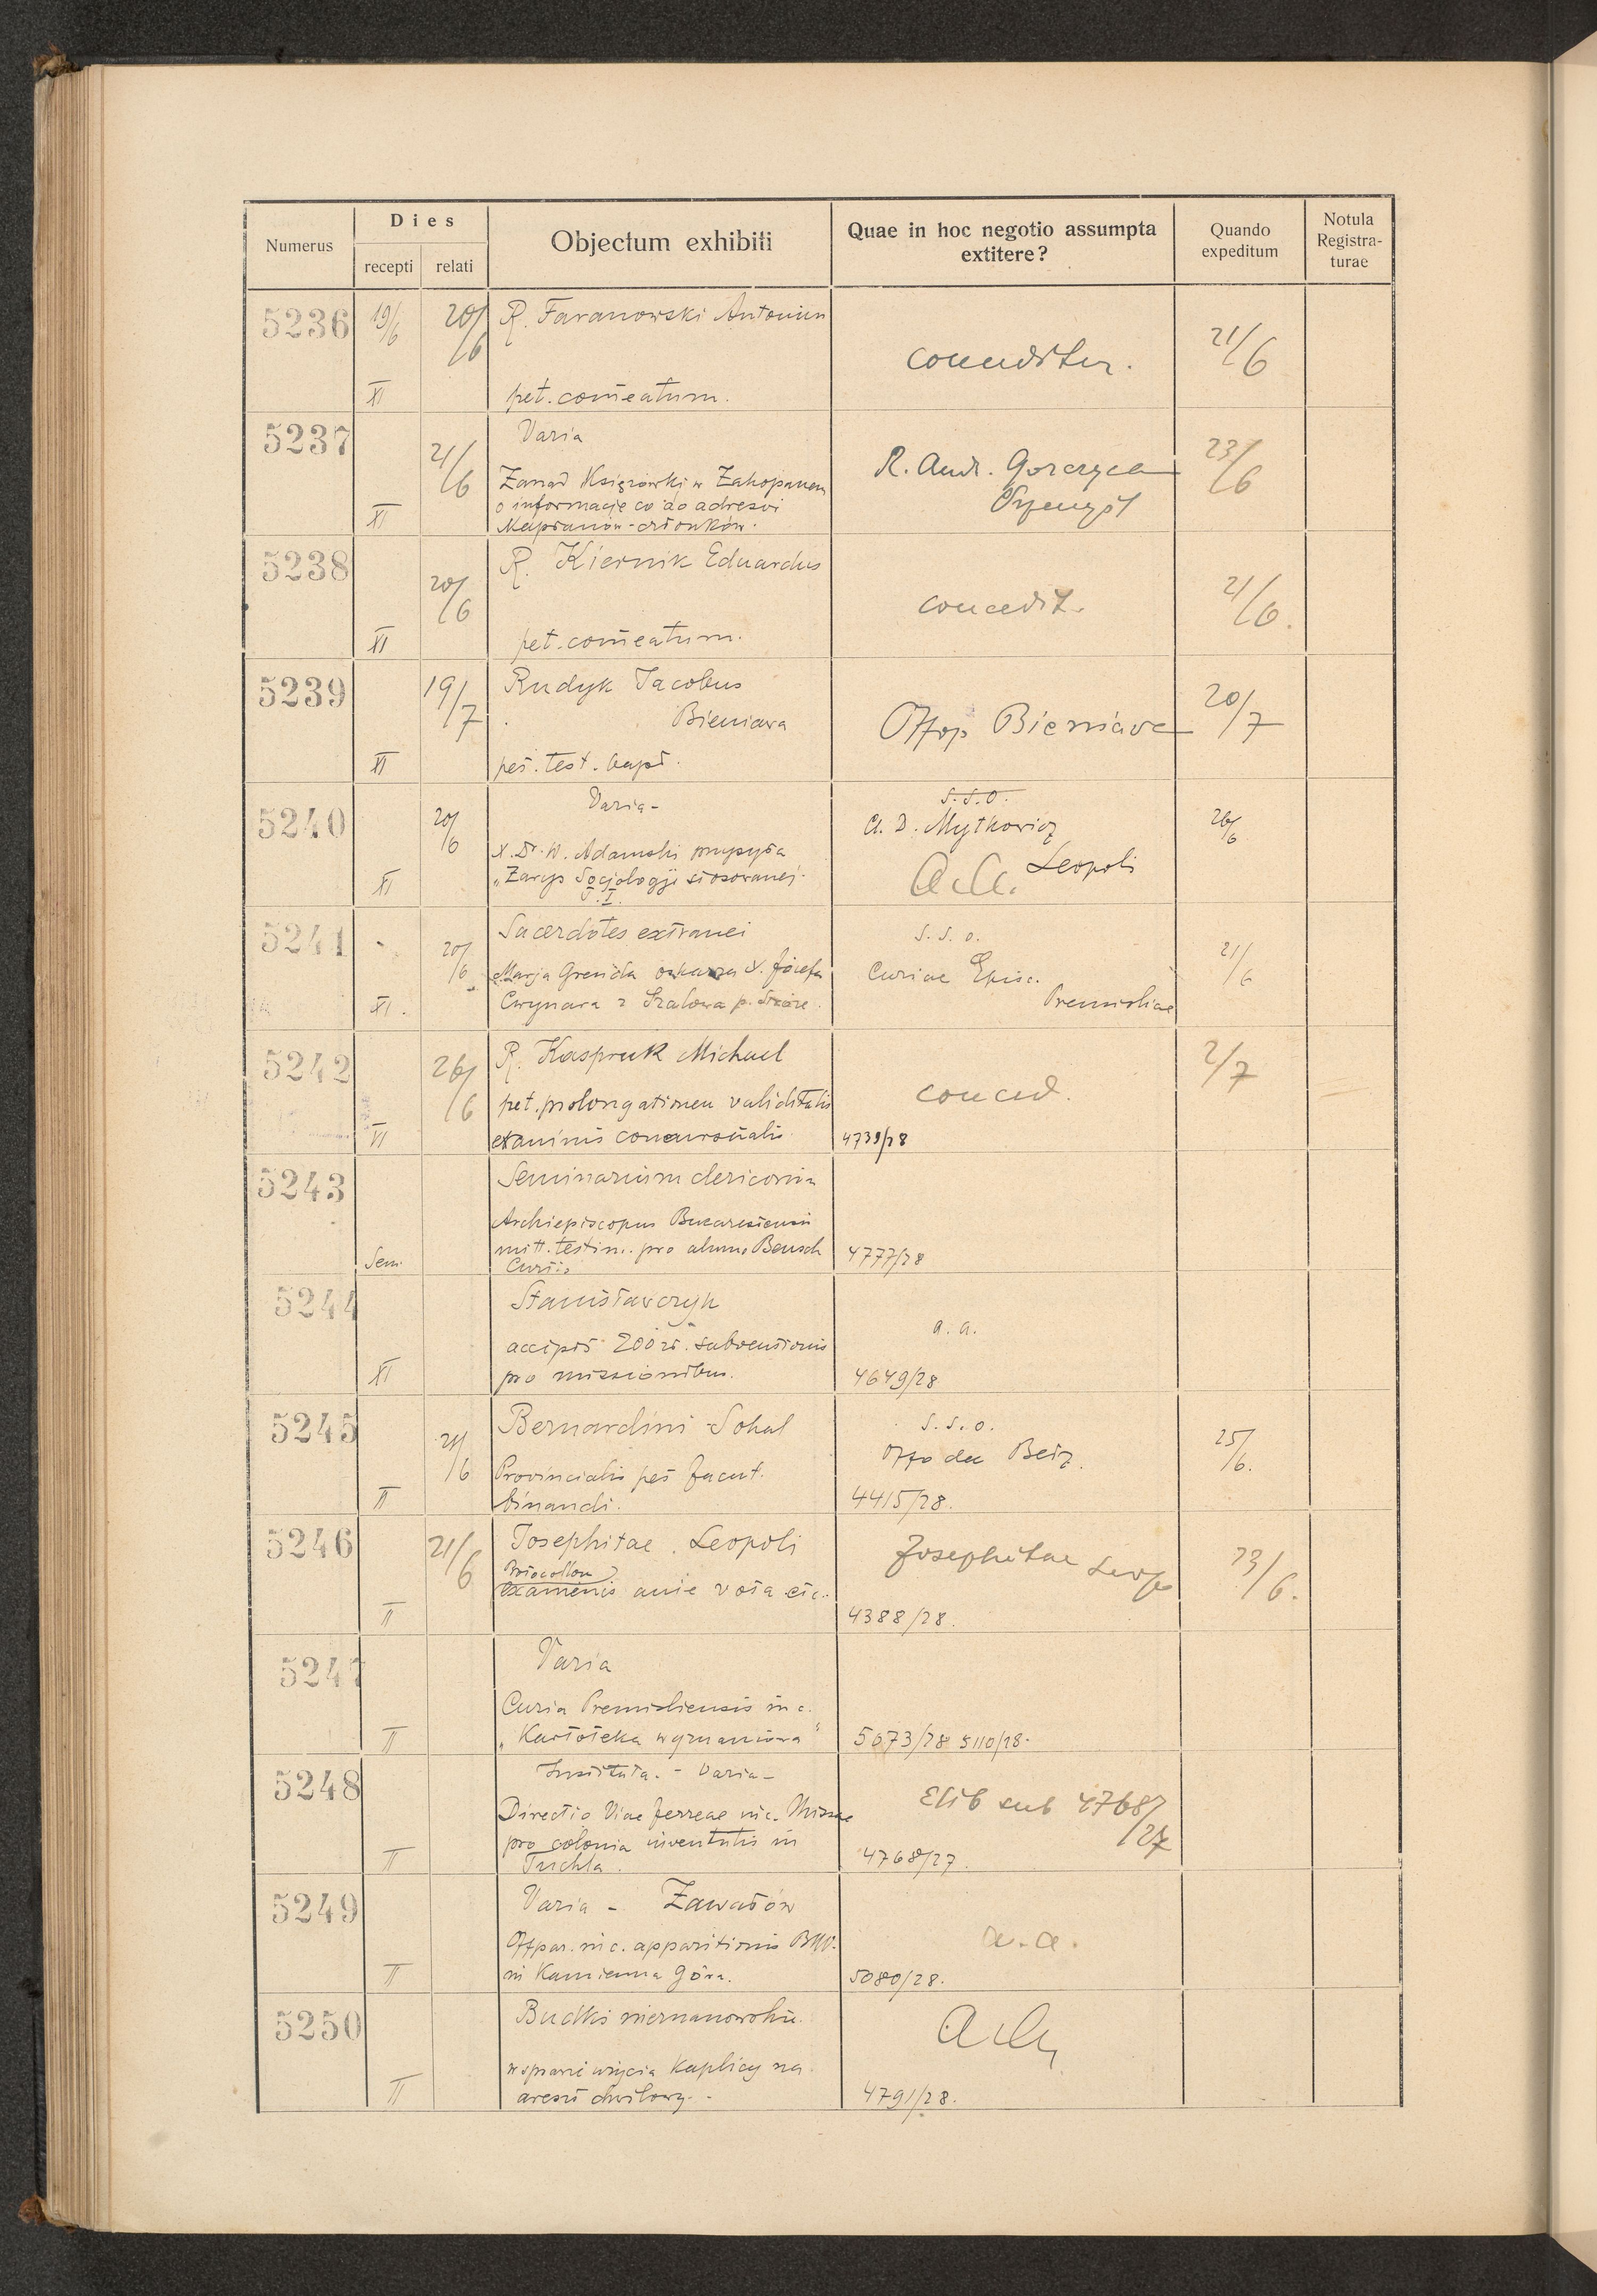 Numerus
Dies
recepti
relati
Objectum exhibiti
Quae in hoc negotio assumpta extitere?
Quando expeditum
Notula Registra-turae
5236 19/6 20/6 R. Faranowski Antonius
conceditur. 21/6
XI pet. com̄eatum.
5237 Varia
21/6 Zarząd Księżówki w Zakopanem R. Andr. Gorczyca 23/6
o informację co do adresói Przemyśl
XI Kapłanów-członków.
5238 R. Kiernik Eduardus
20/6 concedit. 21/6.
XI pet. com̄eatum.
5239 19/7 Rudyk Jacobus
Bieniawa Offop Bieniawa 20/7
XI pet. test. bapt.
5240 Varia - s.s.o.
20/6 Cl. D. Mytkowicz 26/6
X. Dr. W. Adamski przysyła Leopoli
XI „Zarys Socjologji stosowanej. a.a.
T. I.
5241 Sacerdotes extranei s.s.o.
20/6 Marja Grenda oskarża X. Józefa Curiae Episc. 21/6
XI. Cwynara z Szalowa p. Premisliae
5242 26/6 R. Kaspruk Michael 2/7
pet. prolongationem validitatis conced.
VI examinis concursualis 4739/28
5243 Seminarium clericorum
Archiepiscopus Bucarestiensis
mitt. testim. pro alumno Beusch 4777/28
Sem. Curtis
5244 Stanisławczyk
accipit 200 zł. subventionis a.a.
XI pro missionibus. 4649/28
5245 Bernardini Sokal s.s.o.
21/6 Offo dec Bełz. 25/6.
Provincialis pet facult.
II binandi. 4415/28.
5246 21/6 Josephitae Leopoli Josephitae Leop 23/6.
Protocollon
examenis ante vota etc.
II 4388/28.
5247 Varia
Curia Premisliensis in c.
II „Kartoteka wyznaniowa" 5073/28 5110/28.
5248 Instituta. - Varia -
Directio Viae ferreae in c. Missae Elib sub 4768/27
pro colonia iuventutis in
II Tuchla. 4768/27.
5249 Varia - Zawałów
Offpar. in c. apparitionis BMV. a.a.
II in Kamienna Góra. 5080/28.
5250 Budki nieznanowskie a.a.
w sprawie użycia Kaplicy na
II areszt chwilowy. 4791/28.